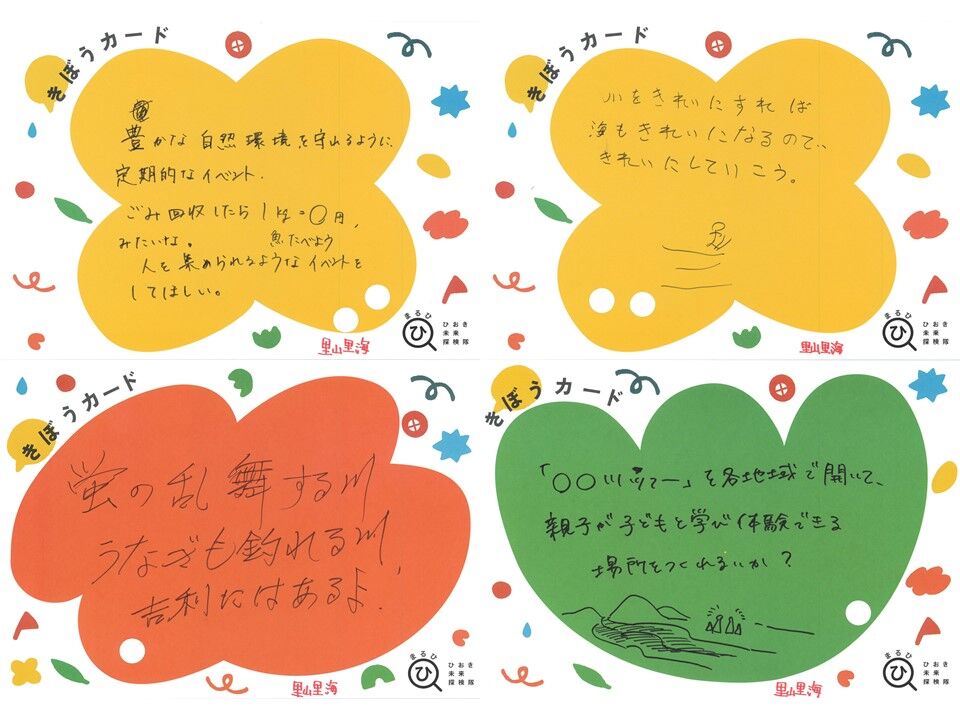 きぼうカード
豊かな自然環境を守れるように、
定期的なイベント.
ごみ回収したら1kg=〇円,
みたいな。
魚たべよう
人を集められるようなイベントを
してほしい。
里山里海
まるひ
ひ
ひおき
未来
探検隊
きぼうカード
川をきれいにすれば
海もきれいになるので、
きれいにしていこう。
里山里海
まるひ
ひ
ひおき
未来
探検隊
きぼうカード
蛍の乱舞する川
うなぎも釣れる川
吉利にはあるよ.
里山里海
まるひ
ひ
ひおき
未来
探検隊
きぼうカード
「〇〇川 デー」を各地域で開いて、
親子が子どもと学び体験できる
場所をつくれないか?
里山里海
まるひ
ひ
ひおき
未来
探検隊